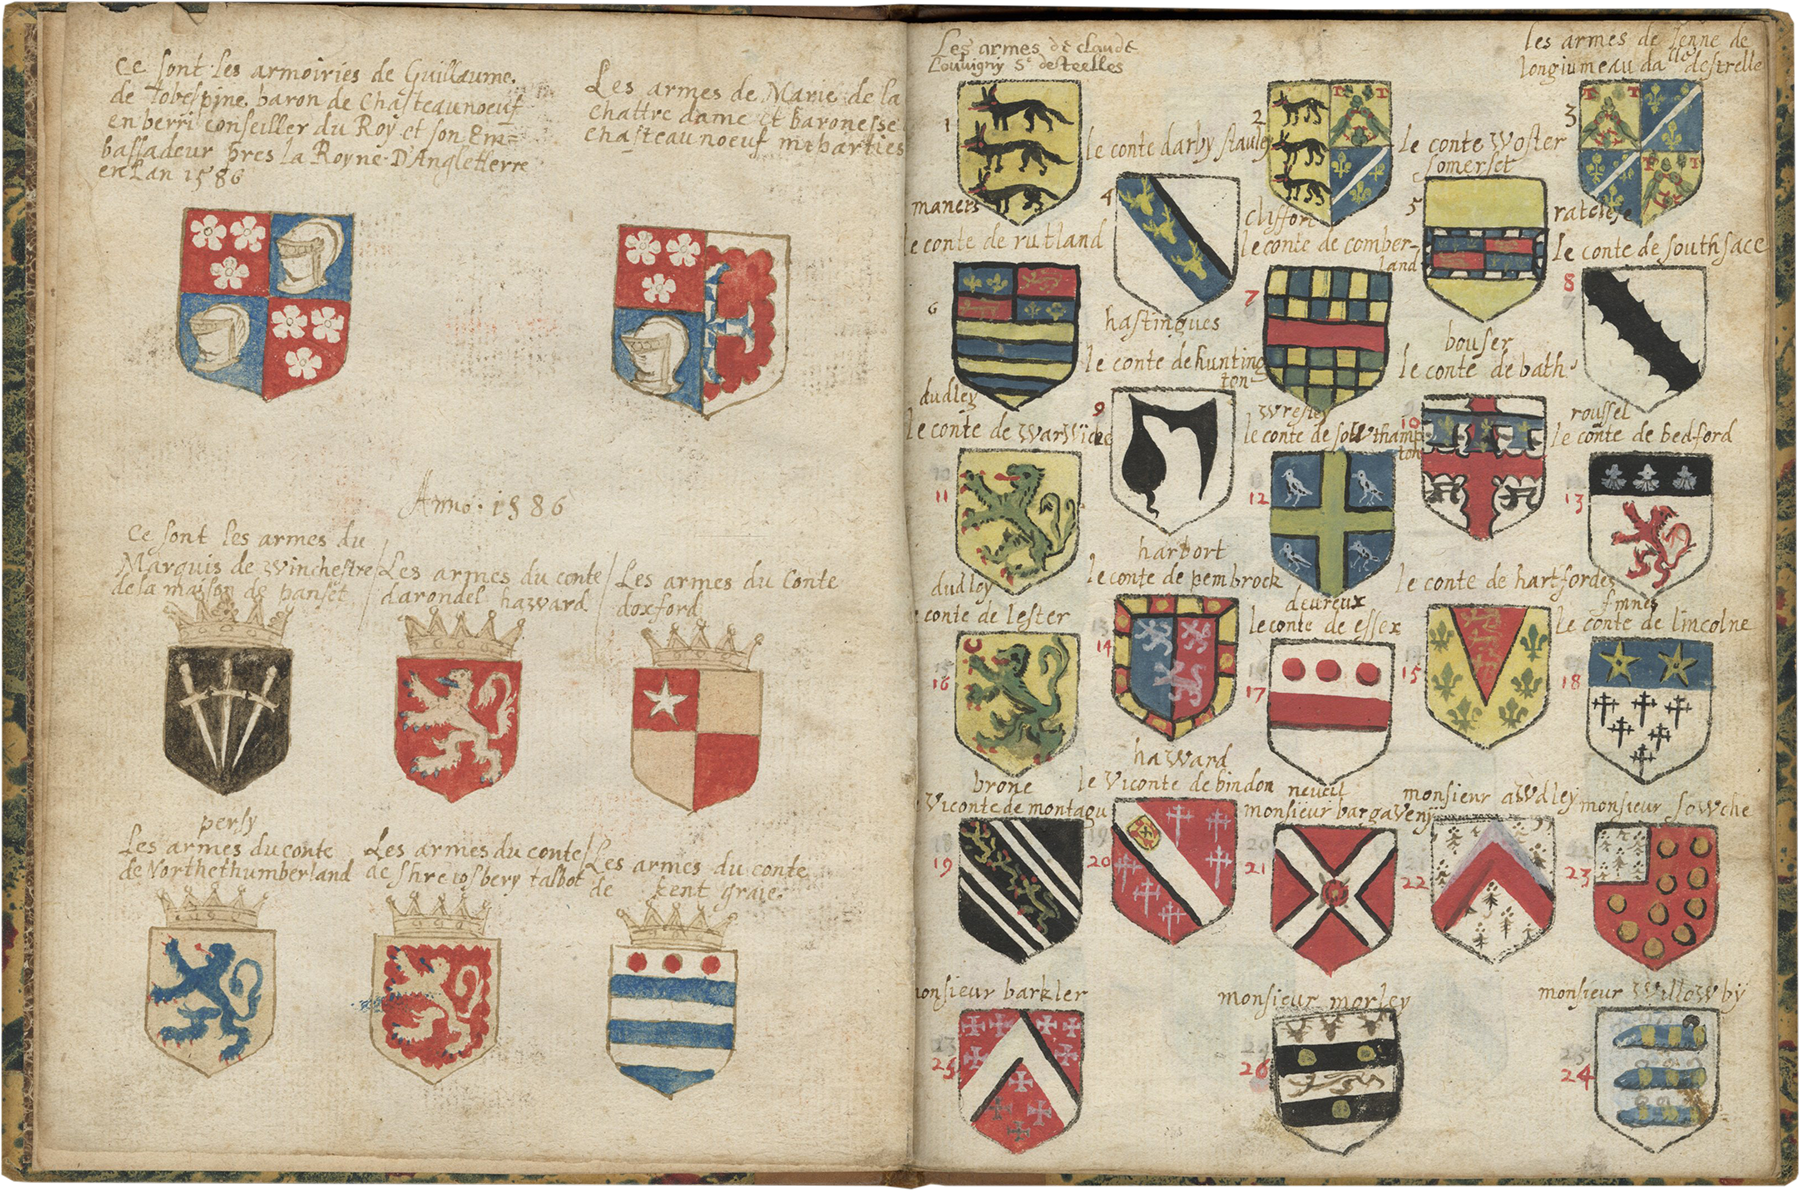 Ce sont les armoiries de Guillaume
de lobespine baron de Chasteauneuf
en berri conseiller du Roy et son Em=
bassadeur pres la Royne D'Angletterre
en Lan 1586
Les armes de Marie de la
chattre dame et baronesse
chasteaunoeuf miparties
Anno. 1586
Ce sont les armes du
Marquis de Winchestre
de la maison de panset
Les armes du conte
darondel haward
Les armes du Conte
doxford
persy
Les armes du conte
de Northethumberland
Les armes du conte
de Shrewsbery talbot
Les armes du conte
de kent graie
Les armes de claude
Louvigny Sr destrelles
les armes de Jenne de
longiumeau da lle destrelle
1
le conte darby stanley
2
le conte Woster
somerset
3
maners
le conte de rutland
4
cliffort
le conte de comber-
land
5
ratclefe
le conte de southsace
6
hastingues
le conte de hunting
ton
7
bouser
le conte de bath
8
dudley
le conte de Warwicke
9
Wresley
le conte de souWthamp
ton
10
roussel
le conte de bedford
11
harbort
le conte de pembrock
12
le conte de hartfordes
13
dudley
le conte de lester
14
deureux
le conte de essex
15
finnes
le conte de lincolne
16
haward
le Viconte de bindon
17
18
brone
Viconte de montagu
neveil
monsieur bargaveny
monsieur aWdley
monsieur sowche
19
20
21
22
23
monsieur barkler
monsieur morley
monsieur WilloWby
25
26
24